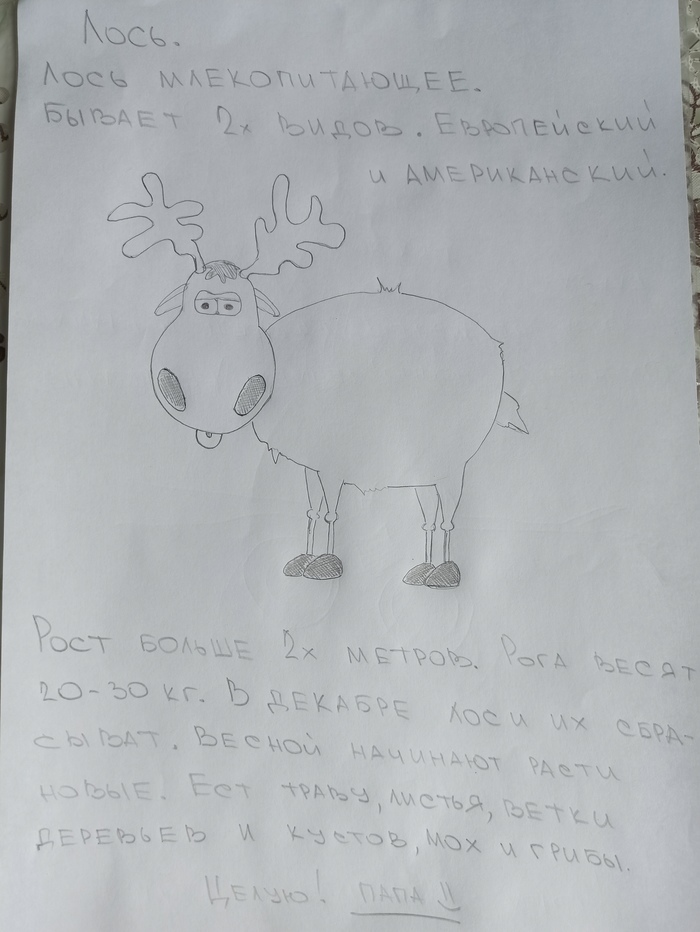 Лось.
Лось млекопитающее.
Бывает 2х видов. Европейский
и Американский.
Рост больше 2х метров. Рога весят
20-30 кг. В декабре лоси их сбра-
сыват. Весной начинают расти
новые. Ест траву, листья, ветки
деревьев и кустов, мох и грибы.
Целую! папа